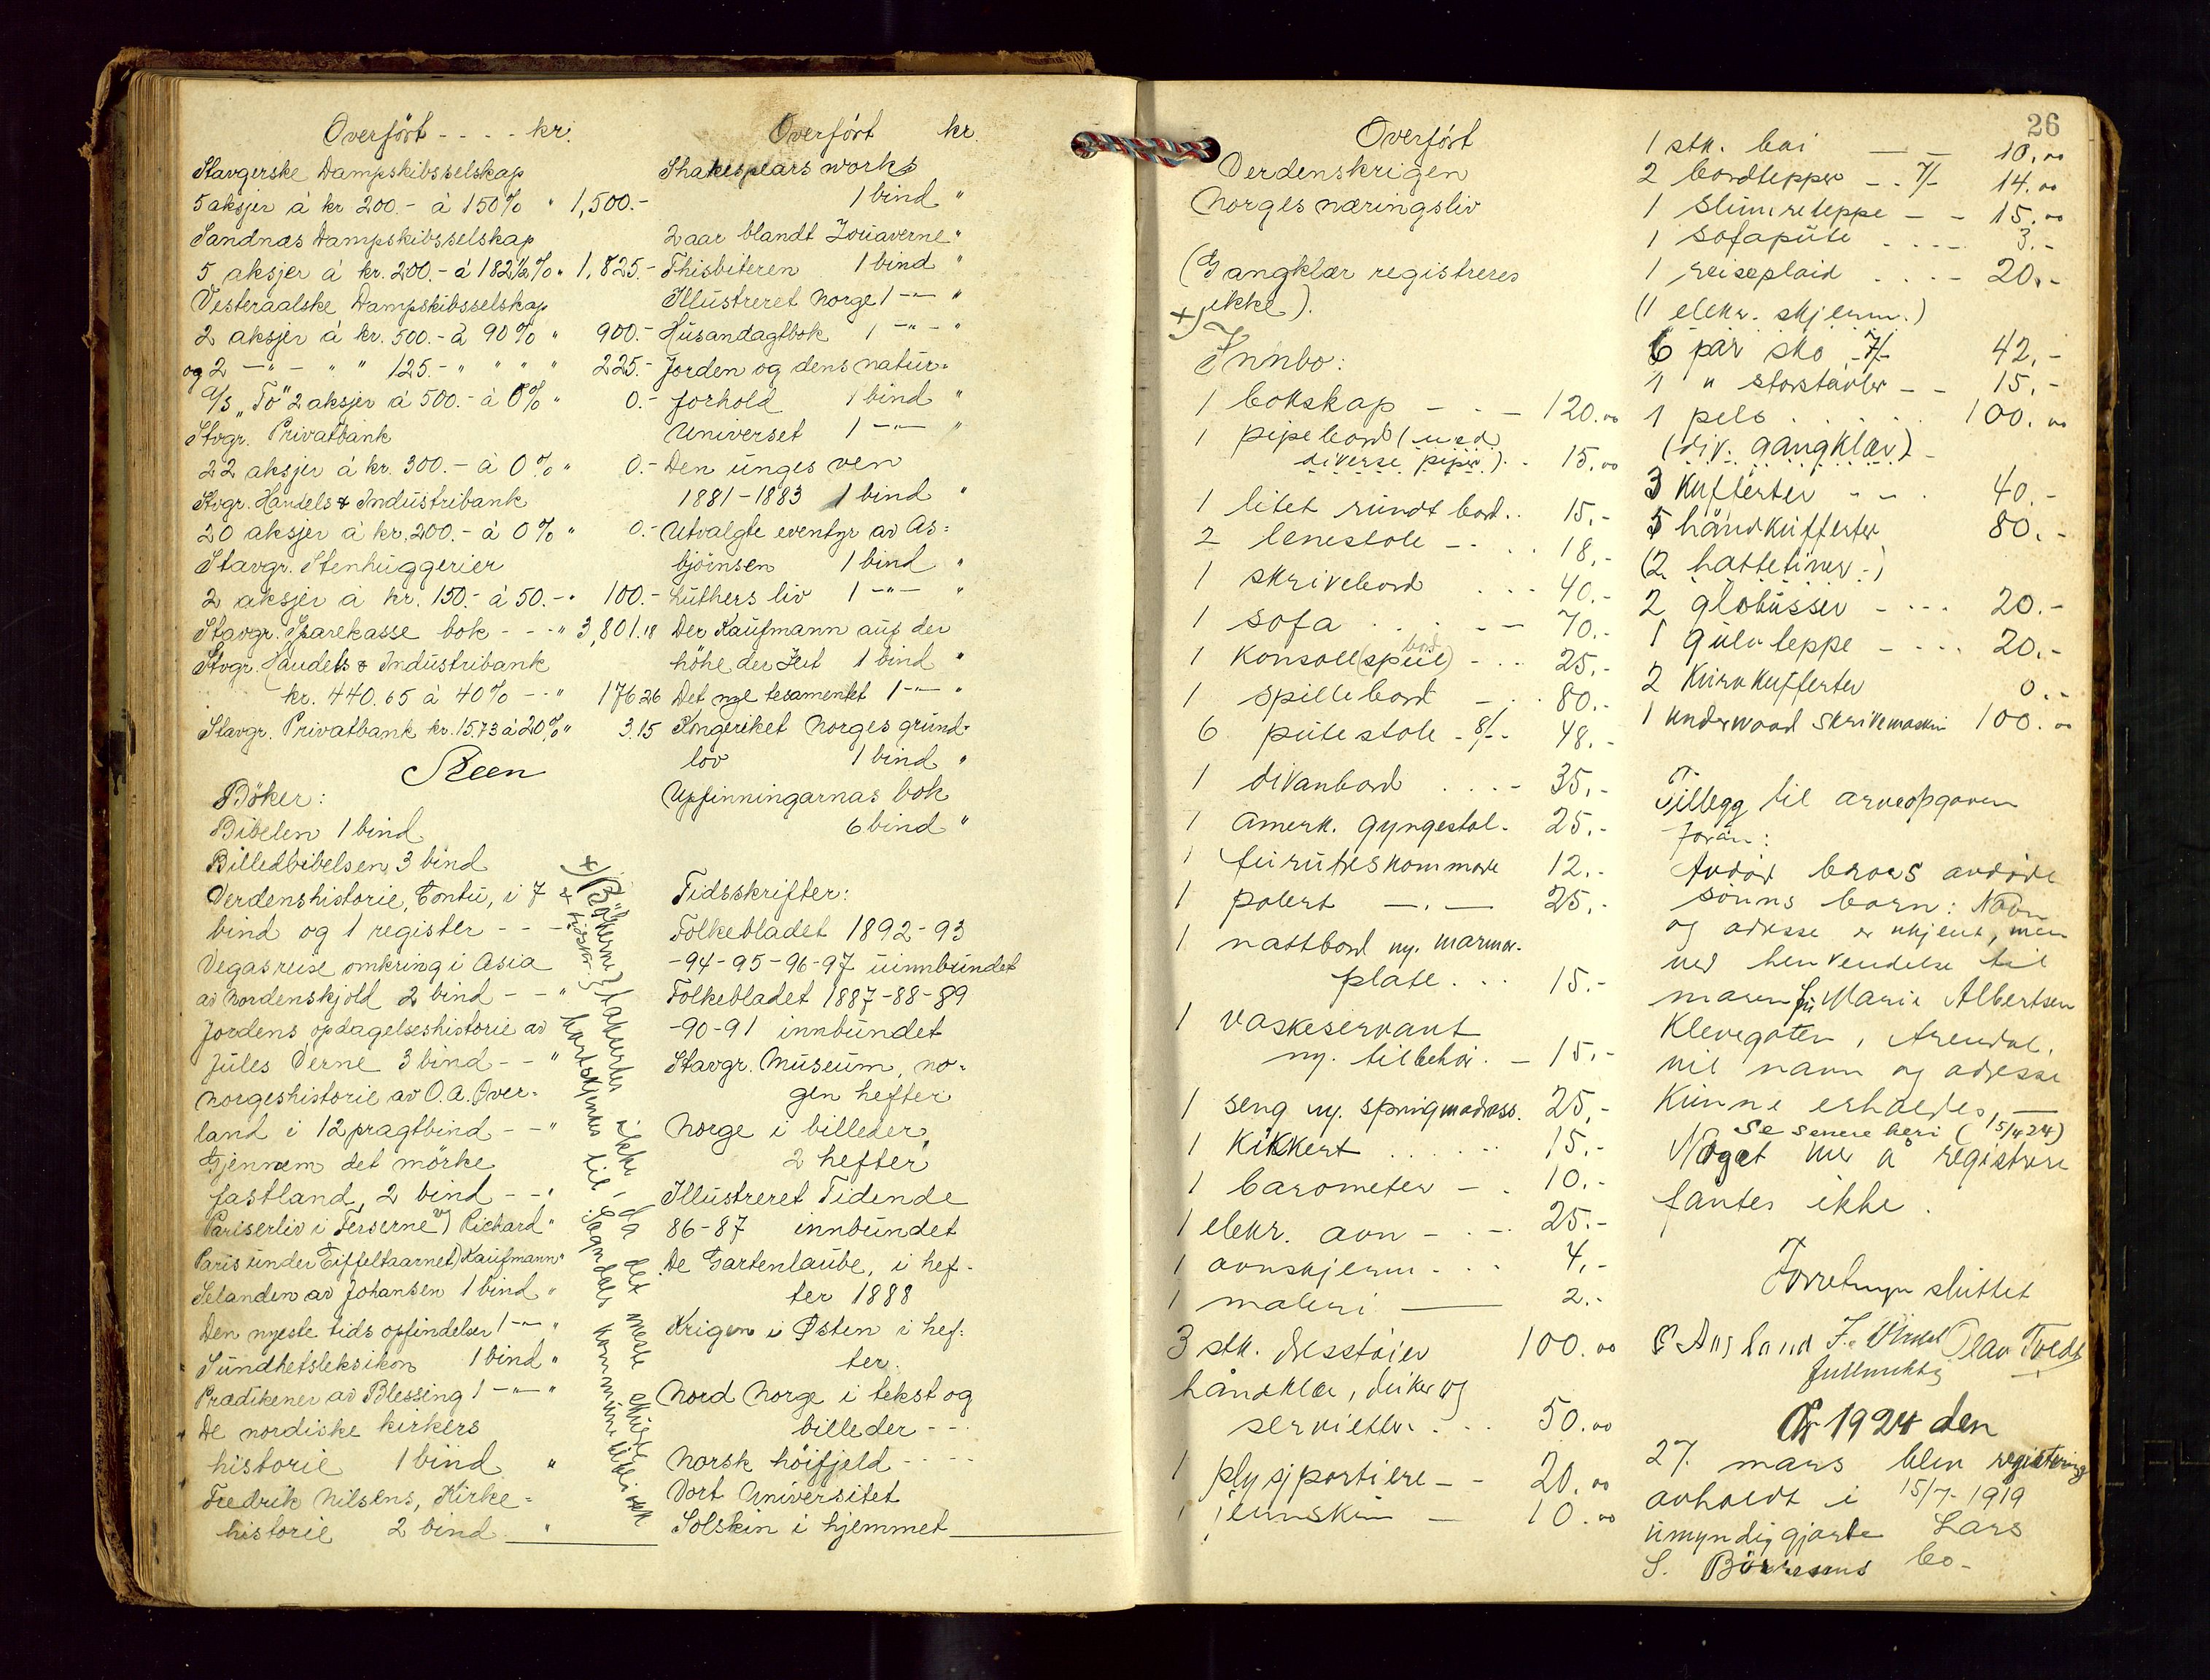 Overført - - - - kr.
Stavgerske Dampskibsselskap
5 aksjer á kr 200.- á 150% " 1,500.-
Sandnæs Dampskibsselskap
5 aksjer á kr. 200.- á 182½% " 1,825.-
Vesteraalske Dampskibsselskap
2 aksjer á kr. 500.- á 90% " 900.-
og 2 -"- - " " 125.- " " " " 225.-
A/S „Fö" 2 aksjer á 500.- á 0% " 0.-
Stvgr. Privatbank
22 aksjer á kr. 300.- á 0% " 0.-
Stvgr. Handels & Industribank
20 aksjer á kr. 200.- á 0% " 0.-
Stavgr. Stenhuggerier
2 aksjer á kr. 150.- á 50.- " 100.-
Stavgr. Sparekasse bok - - - " 3,801.18
Stvgr. Handels & Industribank
kr. 440.65 á 40% - - " 176 26
Stavgr. Privatbank kr. 15.73 á 20% " 3.15
Steen
Bøker:
Bibelen 1 bind
Billedbibelsen 3 bind
Verdenshistorie, Contu, i 7
bind og 1 register - - -
Vegas reise omkring i Asia
av Nordenskjold 2 bind - - "
Jordens opdagelseshistorie av
Jules Verne 3 bind - - "
Norgeshistorie av O. A. Øver-
land i 12 pragtbind - - "
Gjennem det mörke
fastland, 2 bind - - "
Pariserliv i Ferserne av Richard "
Paris under Eiffeltaarnet) Kaufmann "
Selanden av Johansen 1 bind "
Den nyeste tids opfindelser 1 -"- "
Sundhetsleksikon 1 bind "
Prædikener av Blessing 1 -"- "
De nordiske kirkers
historie 1 bind "
Fredrik Nilsens, Kirke-
historie 2 bind "
+) Bökerne } takseres ikke, da det meste skulde
& tidsskr. } bortskjenkes til Sogndals kommunebibliotek
Overført kr.
Shakespears works
1 bind "
2 aar blandt Zouaverne "
Thisbiteren 1 bind "
Illustreret Norge 1 -"- "
Husandagtbok 1 -"- "
Jorden og dens natur-
forhold 1 bind "
Universet 1 -"- "
Den unges ven
1881-1883 1 bind "
Utvalgte eventyr av As=
björnsen 1 bind "
Luthers liv 1 -"- "
Der Kaufmann auf der
höhe der Zeit 1 bind "
Det nye tesamentet 1 -"- "
Kongeriket Norges grund-
lov 1 bind "
Upfinningarnas bok
6 bind "
Tidsskrifter:
Folkebladet 1892-93
-94-95-96-97 uinnbundet
Folkebladet 1887-88-89
-90-91 innbundet
Stavgr. Museum, no-
gen hefter
Norge i billeder,
2 hefter
Illustreret Tidende
86-87 innbundet
De Gartenlaube, i hef-
ter 1888
Krigen i Østen i hef-
ter.
Nord Norge i tekst og
billeder - - -
Norsk höifjeld - - - -
Vort Universitet
Solskin i hjemmet
Overført
Verdenskrigen
Norges næringsliv
(Gangklær registreres
+) ikke).
Innbo:
1 bokskap - - - 120.00
1 pipebord (med
diverse piper) . . 15.00
1 litet rundt bord . . 15.-
2 lenestole - . . . 18.-
1 skrivebord . . . 40.-
1 sofa . . . - - 70.-
1 konsoll(speil)bord - . . 25.-
1 spillebord - . . 80.-
6 pütestole - 8/- - 48.-
1 divanbord . . . - 35.-
1 Amerk. gyngestol - 25.-
1 furutreskommode 12.-
1 polert -.- 25.-
1 nattbord m. marmor-
plate . . . 15.-
1 vaskeservant
m. tilbehör . - 15.-
1 seng m. springmadrass. 25.-
1 Kikkert . . . . . . 15.-
1 barometer - . 10.-
1 elekr. ovn - . - . 25.-
1 ovnskjerm . . . 4.-
1 maleri - 2.-
3 stk. dresstöier 100.00
håndklær, duker og
servietter . . . 50.00
1 plysjportiere - - 20.00
1 jernskrin - 10.00
26
1 stk. boi - - 10.00
2 bordtepper - . 7/- 14.00
1 slumreteppe - - 15.00
1 sofapüte . . . . 3.-
1 reiseplaid . . . - 20.-
(1 elekr. skjerm.)
6 par sko -7/- 42.-
1 " storstövler - - 15.-
1 pels . . . . . . 100.00
(div. gangklær) -
3 Kufferter - - . 40.-
5 håndkufferter 80.-
(2 hatteiner -)
2 globusser - . . . 20.-
1 gulvteppe - . . . 20.-
2 Kurvkufferter 0.-
1 underwood Skrivemaskin 100.00
Tillegg til arveopgaven
foran:
Avdød brors avdøde
sønns barn: Navn
og adresse er ukjent, men
ved henvendelse til
moren fru Marie Albertsen
Klevegaten, Arendal,
vil navn og adresse
kunne erholdes, -
Se senere heri (15/4 24)
Noget mer å registrere
fantes ikke.
Forretningen sluttet
Aasland Olav Tvedt
fullmektig
År 1924 den
27. mars blev registrering
avholdt i 15/7-1919
umyndiggjorte Lars
S. Börresens bo-